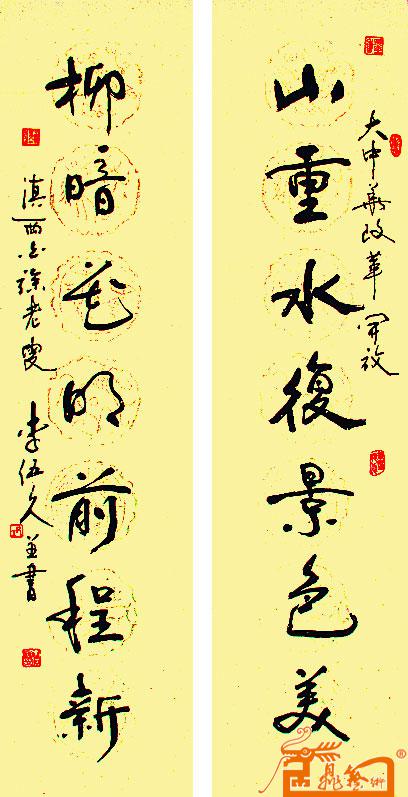 大中華改革開放
山重水復景色美
柳暗花明前程新
滇西 徐老叟
李伍久並書